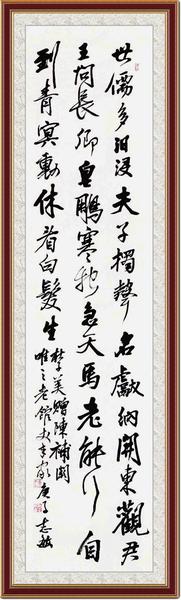 世儒多汩没夫子獨聲名獻納開東觀君
王問長卿皂鵰寒始急天馬老能行自
到青冥裏休看白髮生
贈陳補闕
老館 志敏